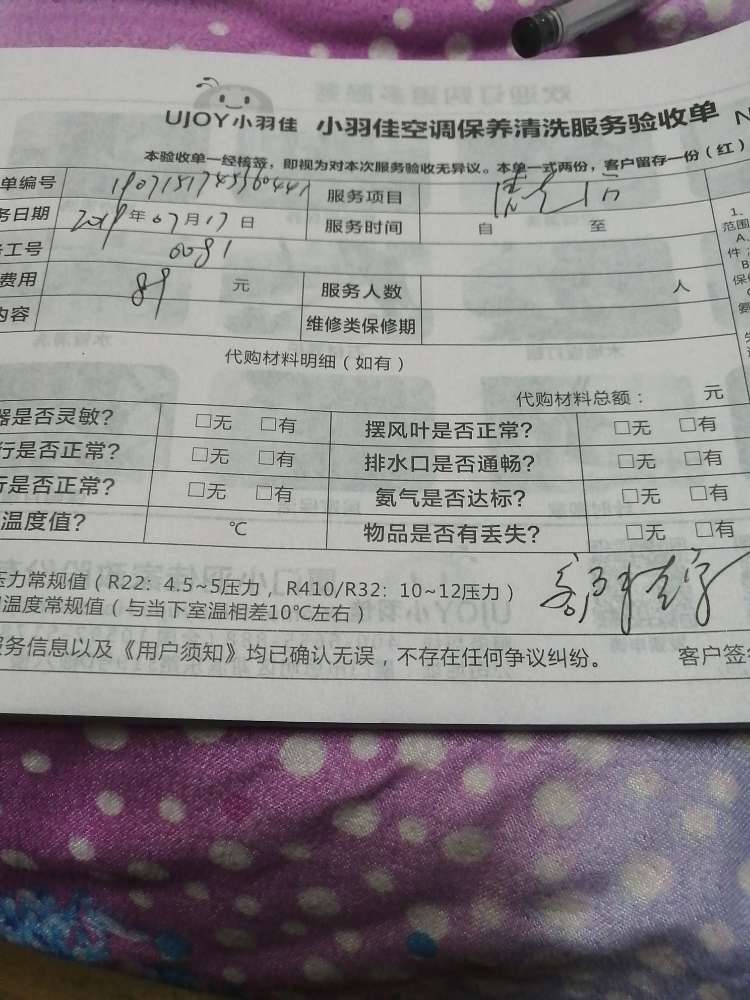 UJOY小羽佳 小羽佳空调保养清洗服务验收单 N
本验收单一经核签，即视为对本次服务验收无异议。本单一式两份，客户留存一份（红）
单编号 服务项目
务日期 2019年07月17日 服务时间 自 至
工号 6081
费用 89 元 服务人数 人
内容 维修类保修期
代购材料明细（如有）
代购材料总额： 元
器是否灵敏？ □无 □有 摆风叶是否正常？ □无 □有
行是否正常？ □无 □有 排水口是否通畅？ □无 □有
行是否正常？ □无 □有 氨气是否达标？ □无 □有
温度值？ ℃ 物品是否有丢失？ □无 □有
压力常规值（R22：4.5~5压力，R410/R32：10~12压力）
温度常规值（与当下室温相差10℃左右）
服务信息以及《用户须知》均已确认无误，不存在任何争议纠纷。 客户签
1.
范围
A.
件
B
保